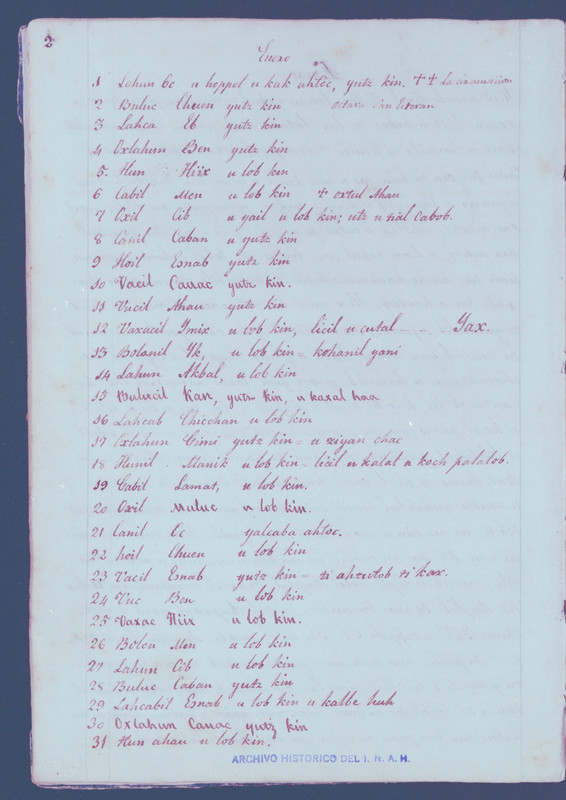 2
Enero
1 Lahun Oc u hoppol u kak ahtoc, yutz kin. ++ La circuncisión
2 Buluc Chuen yutz kin octava San Estevan
3 Lahca Eb yutz kin
4 Oxlahum Ben yutz kin
5. Hun Hiix u lob kin
6 Cabil Men u lob kin + oxtul Ahau
7 Oxil Cib u yail u lob kin; utz u zial Cabob.
8 Canil Caban u yutz kin
9 Hoil Esnab yutz kin
10 Vacil Cauac yutz kin.
11 Vucil Ahau yutz kin
12 Vaxacil Ymix u lob kin, licil u cutal Yax.
13 Bolonil Yk, u lob kin = kohanil yani
14 Lahun Akbal, u lob kin
15 Bulucil Kan, yutz kin, u kaxal haa
16 Lahcab Chicchan u lob kin
17 Oxlahun Cimi yutz kin = u ziyan chac
18 Hunil Manik u lob kin - licil u kalal u koch palalob.
19 Cabil Lamat, u lob kin.
20 Oxil Muluc u lob kin.
21 Canil Oc yalcaba ahtoc.
22 hoil Chuen u lob kin
23 Vacil Esnab yutz kin = ti ahzutob ti kax.
24 Vuc Ben u lob kin
25 Vaxac Hiix u lob kin.
26 Bolon Men u lob kin
27 Lahun Cib u lob kin
28 Buluc Caban yutz kin
29 Lahcabil Esnab u lob kin u kalbe huh
30 Oxlahun Cauac yutz kin
31 Hun ahau u lob kin.
ARCHIVO HISTORICO DEL I. N. A. H.